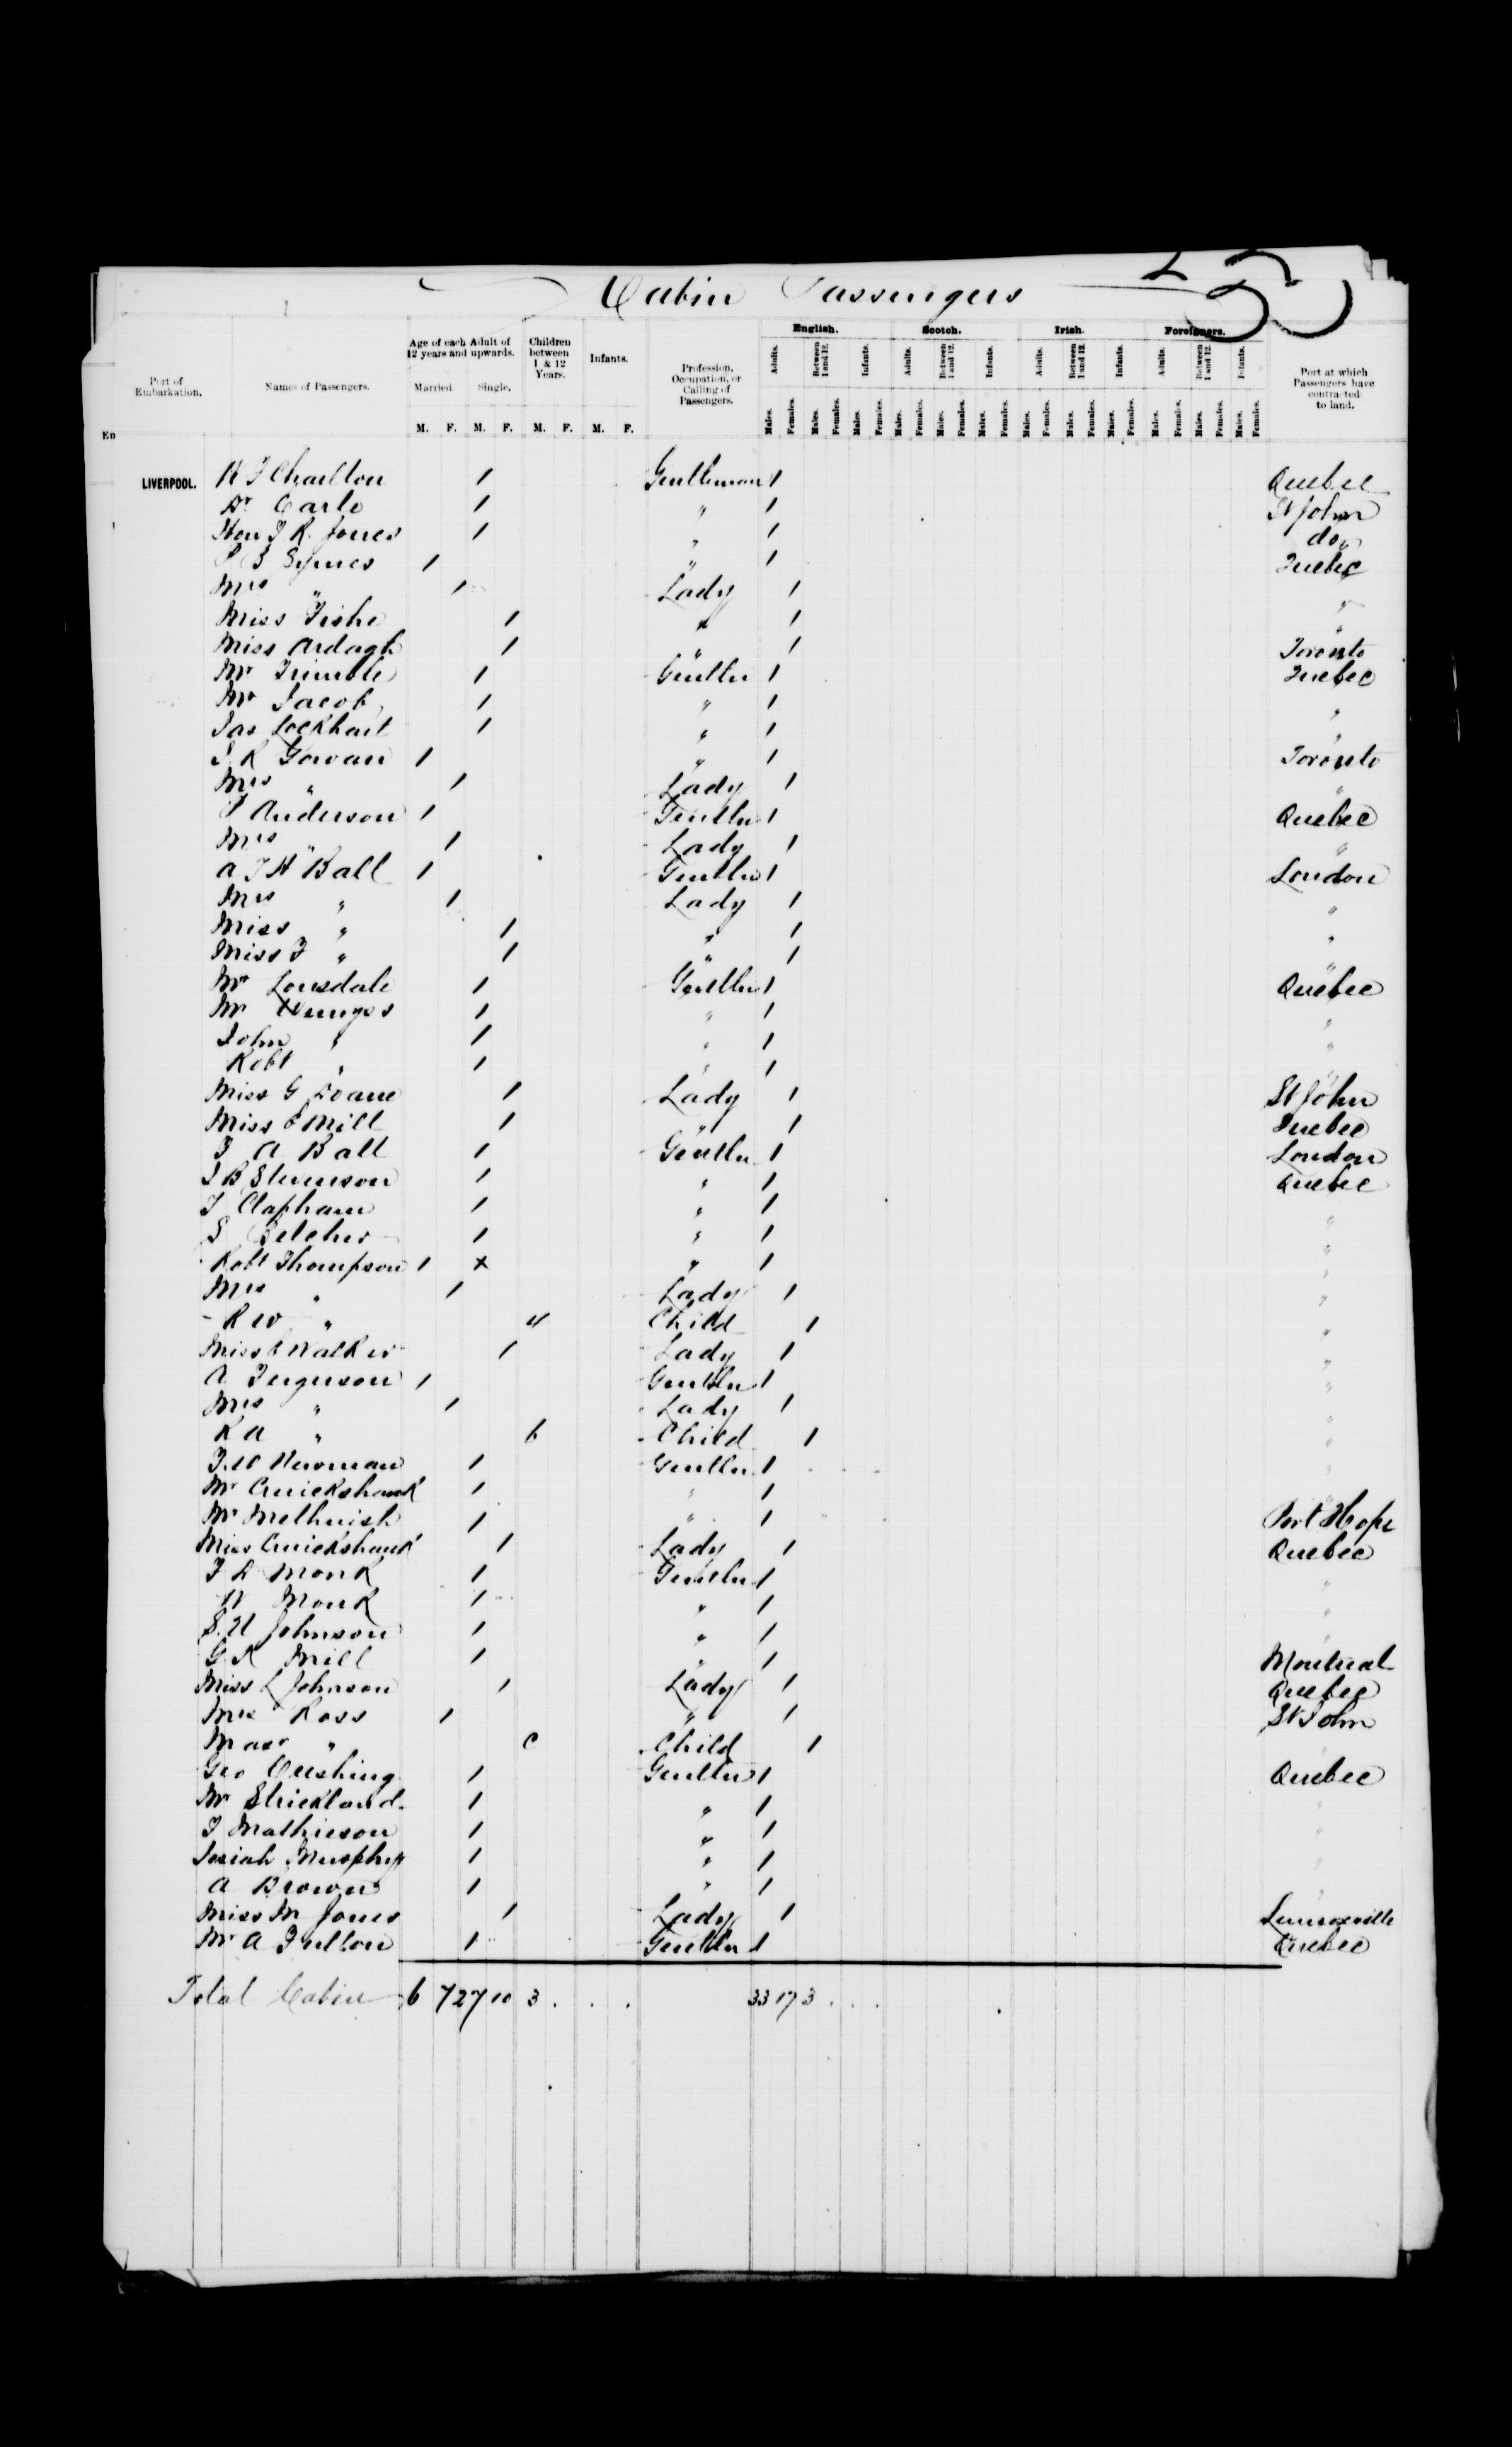 Cabin Passengers
Port of Embarkation. Names of Passengers. Age of each Adult of 12 years and upwards. Married Single. M. F. M. F. Children between 1 & 12 Years. M. F. Infants. M. F. Profession, Occupation, or Calling of Passengers. English. Scotch. Irish. Foreigners. Adults. Between 1 and 12. Infants. Males. Females. Port at which Passengers have contracted to land.
En
LIVERPOOL. Charlton 1 Gentleman 1 Quebec
Dr Earle 1 " 1 St John
Hon T. R. Jones 1 " 1 do
Symes 1 " 1 Quebec
Mrs " 1 Lady 1 "
Miss 1 " 1 "
Miss Ardagh 1 " 1 Toronto
Mr Trimble 1 Gentln 1 Quebec
Mr Jacob 1 " 1 "
Jas Lockhart 1 " 1 "
J. R Gowan 1 " 1 Toronto
Mrs " 1 Lady 1 "
Anderson 1 Gentln 1 Quebec
Mrs " 1 Lady 1 "
Ball 1 Gentln 1 London
Mrs " 1 Lady 1 "
Miss " 1 " 1 "
Miss F " 1 " 1 "
Mr Lonsdale 1 Gentln 1 Quebec
Mr 1 " 1 "
John " 1 " 1 "
Robt " 1 " 1 "
Miss G Doane 1 Lady 1 St John
Miss E Mill 1 " 1 Quebec
F A Ball 1 Gentln 1 London
J B Stevenson 1 " 1 Quebec
J Clapham 1 " 1 "
S Belcher 1 " 1 "
Robt Thompson 1 x " 1 "
Mrs " 1 Lady 1 "
R W " 4 Child 1 "
Miss Walker 1 Lady 1 "
A. Ferguson 1 Gentln 1 "
Mrs " 1 Lady 1 "
R A " 6 Child 1 "
Newman 1 Gentln 1 "
Mr Cruickshank 1 " 1 "
Mr Melhuish 1 " 1 Port Hope
Miss Cruickshank 1 Lady 1 Quebec
F D Monk 1 Gentln 1 "
W Monk 1 " 1 "
Johnson 1 " 1 "
G R Mill 1 " 1 Montreal
Miss L Johnson 1 Lady 1 Quebec
Mrs Ross 1 " 1 St John
Masr " Child 1 "
Geo Cushing 1 Gentln 1 Quebec
Mr Strickland 1 " 1 "
J Mathieson 1 " 1 "
Josiah Murphy 1 " 1 "
A Brown 1 " 1 "
Miss M Jones 1 Lady 1 Lennoxville
Mr A Fulton 1 Gentln 1 Quebec
Total Cabin 6 7 27 10 3 . . . 33 17 3 . . .